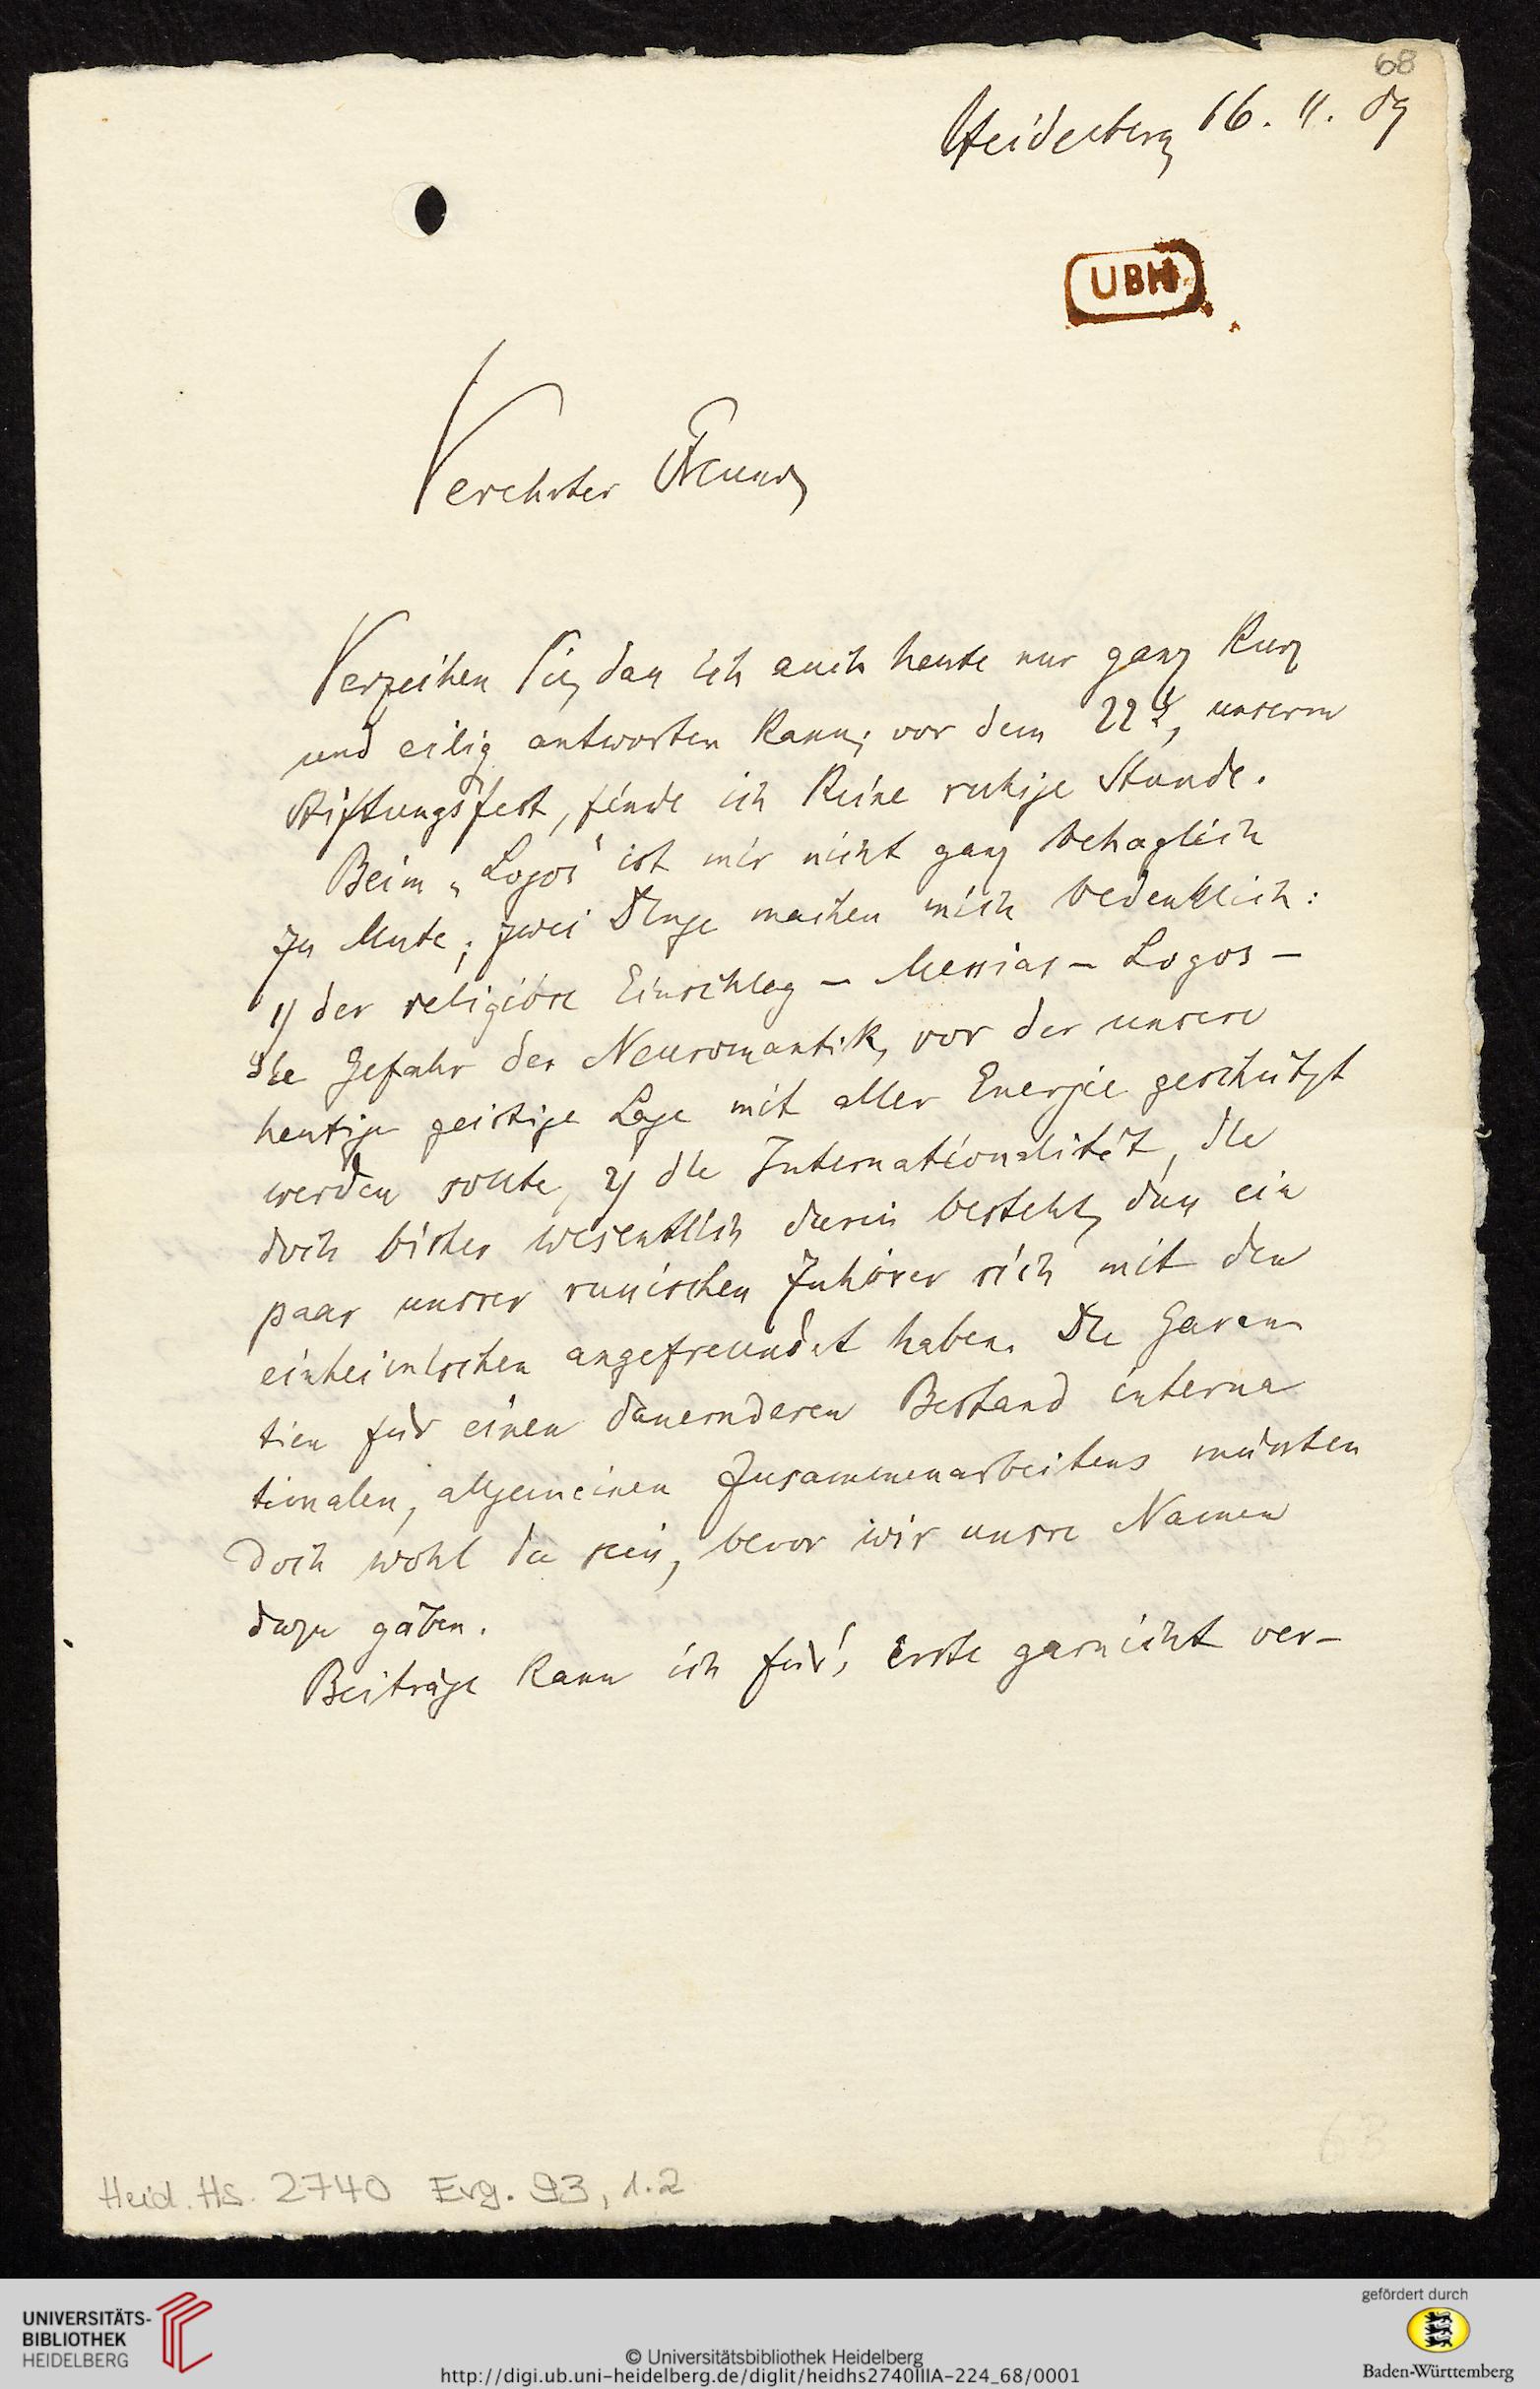 68
Heidelberg 16. 11. 09
UBH
Verehrter Freund
Verzeihen Sie, dass ich auch heute nur ganz kurz
und eilig antworten kann; vor dem 22ᵗ, unserm
Stiftungsfest, finde ich keine ruhige Stunde.
Beim „Logos“ ist mir nicht ganz behaglich
zu Mute; zwei Dinge machen mich bedenklich:
1) der religiöse Einschlag – Messias – Logos –
die Gefahr der Neuromantik, vor der unsere
heutige geistige Lage mit aller Energie geschützt
werden sollte, 2) die Internationalität, die
doch bisher wesentlich darin besteht, dass ein
paar unsrer russischen Zuhörer sich mit den
einheimischen angefreundet haben. Die Garan
tien für einen dauernderen Bestand interna
tionalen, allgemeinen Zusammenarbeitens müssten
doch wohl da sein, bevor wir unsre Namen
dazu gäben.
Beiträge kann ich für's erste garnicht ver-
63
Heid. Hs. 2740 Erg. 93, 1.2
UNIVERSITÄTS-
BIBLIOTHEK
HEIDELBERG
© Universitätsbibliothek Heidelberg
http://digi.ub.uni-heidelberg.de/diglit/heidhs2740IIIA-224_68/0001
gefördert durch
Baden-Württemberg